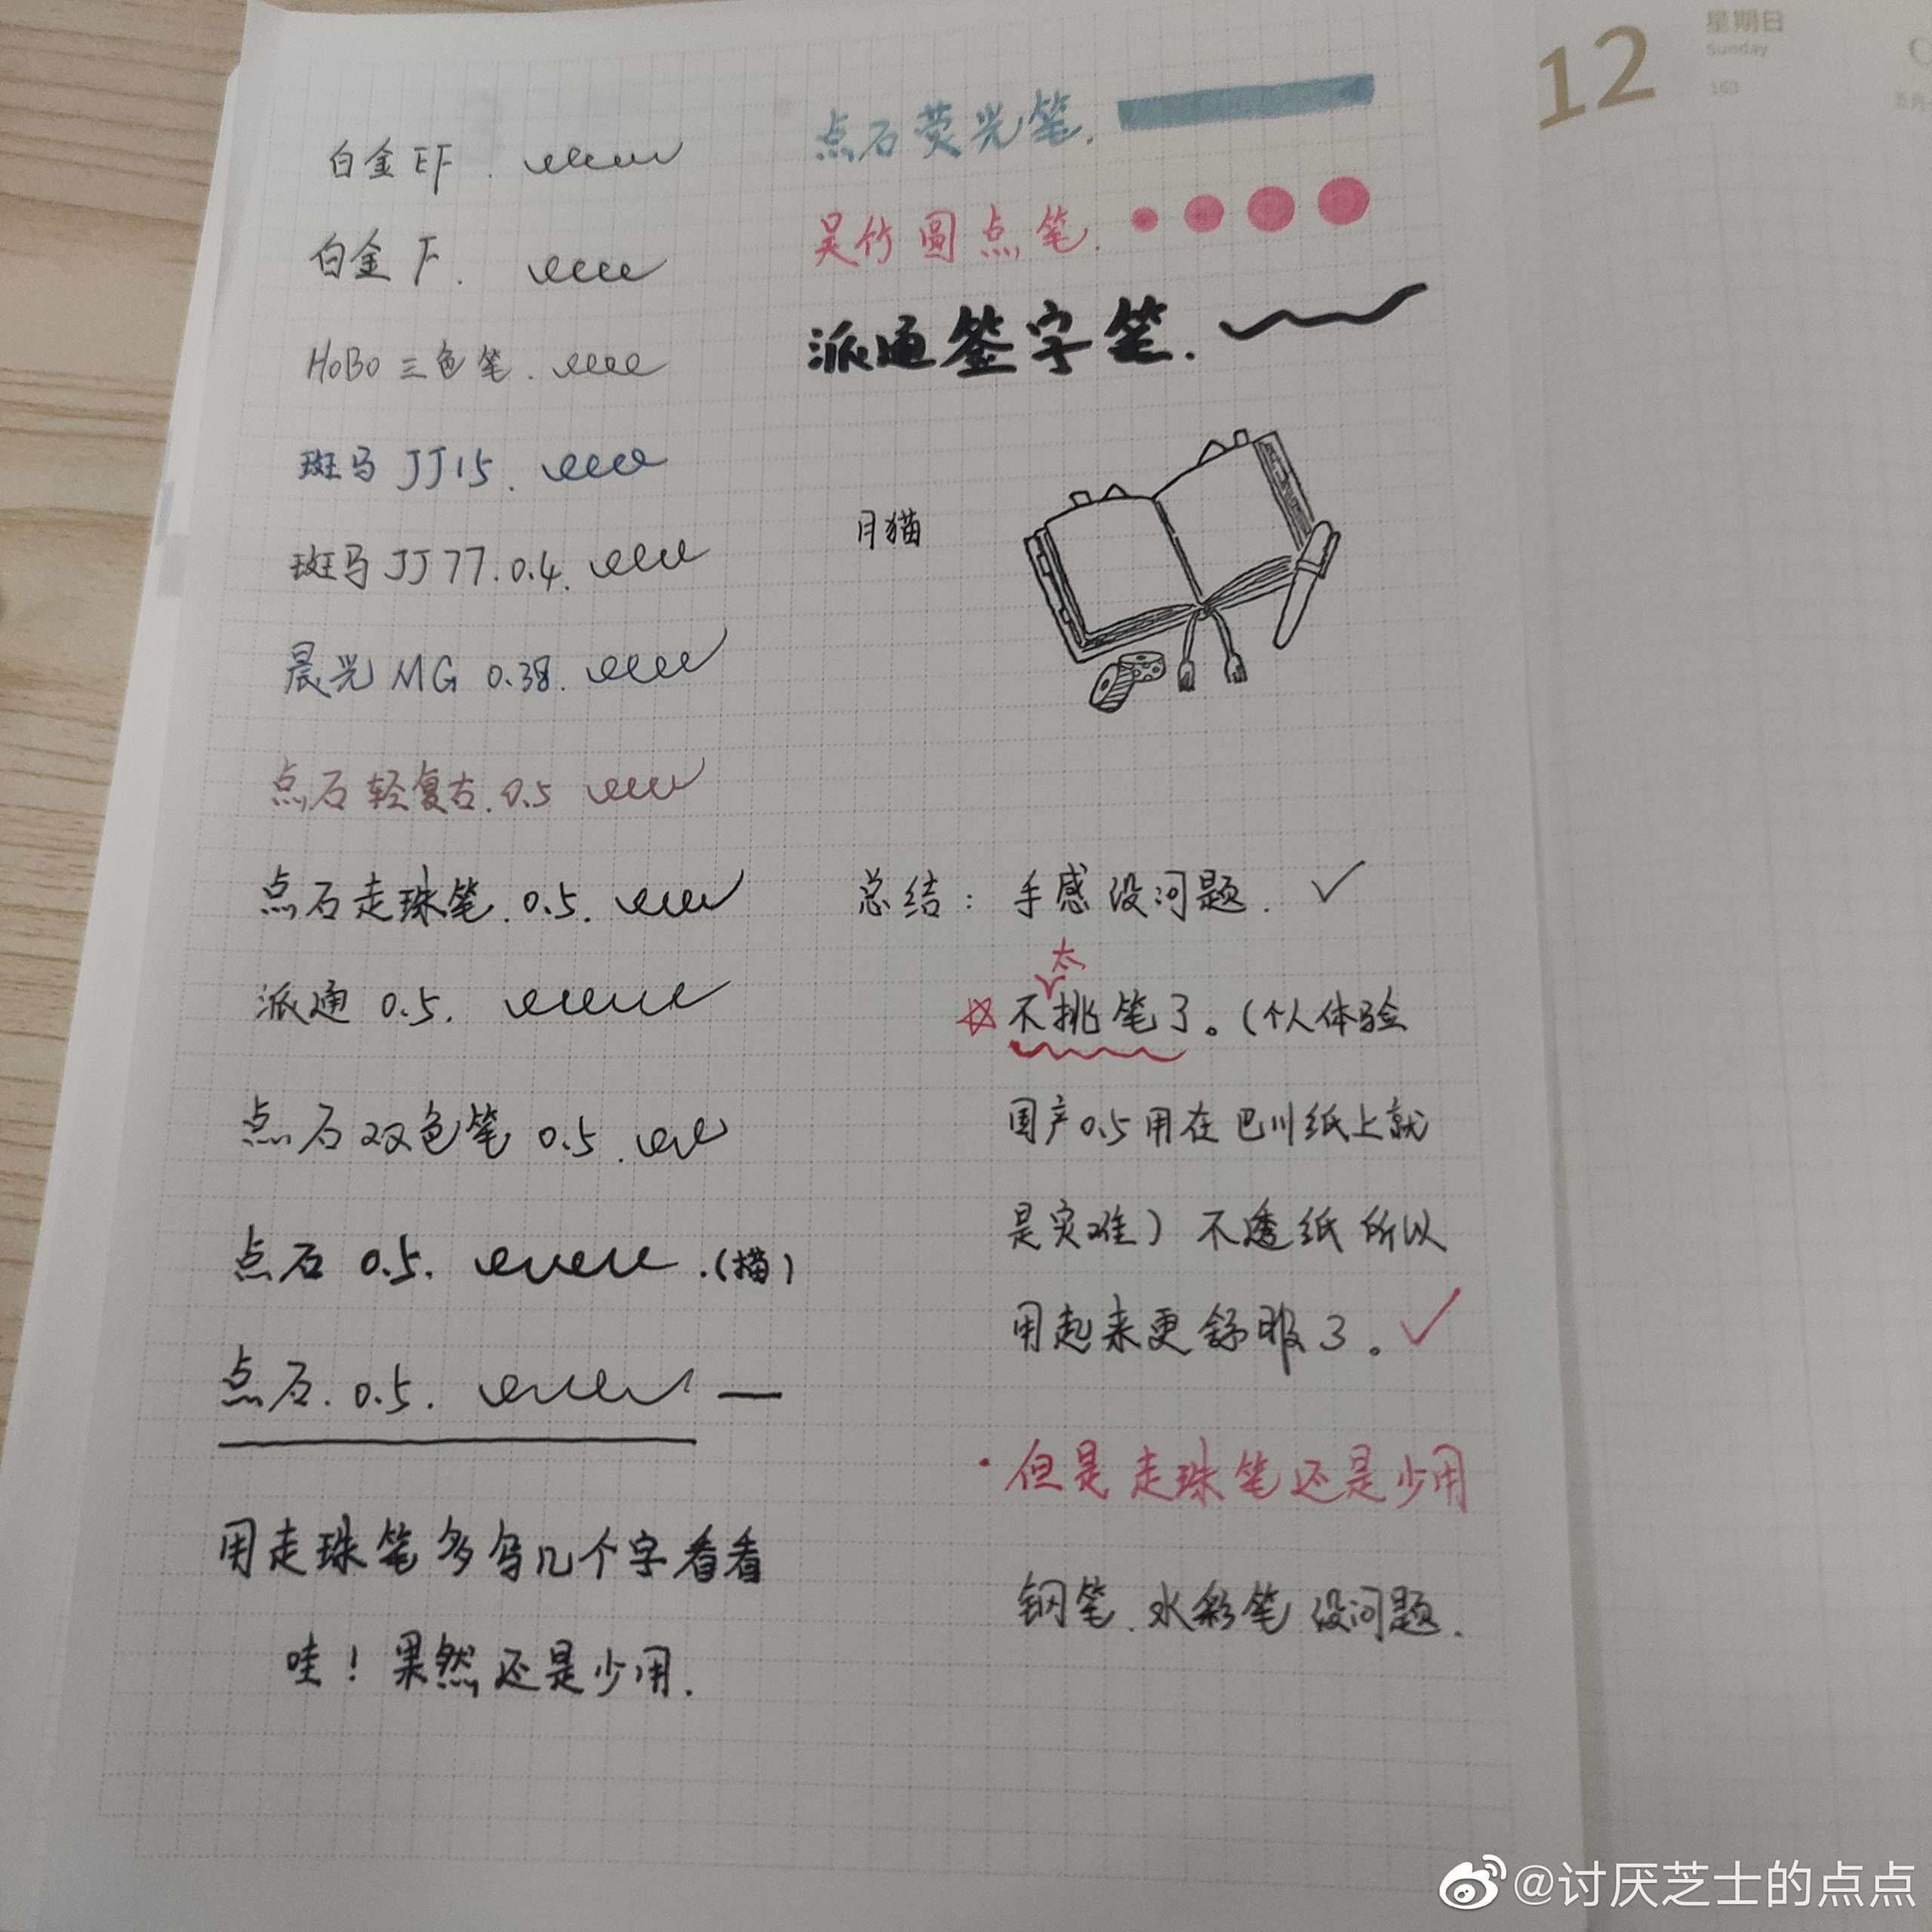 白金 EF.
白金 F.
HoBo 三色笔.
斑马 JJ15.
斑马 JJ77.0.4.
晨光 MG 0.38.
点石轻复古.0.5
点石走珠笔.0.5.
派通 0.5.
点石双色笔 0.5.
点石 0.5. .(描)
点石.0.5.
用走珠笔多写几个字看看
哇!果然还是少用.
点石荧光笔.
吴竹圆点笔.
派通签字笔.
月猫
总结: 手感没问题.
太
不挑笔了。(个人体验
国产0.5用在巴川纸上就
是灾难) 不透纸所以
用起来更舒服了。
·但是走珠笔还是少用
钢笔.水彩笔没问题.
12
星期日
Sunday
163
@讨厌芝士的点点